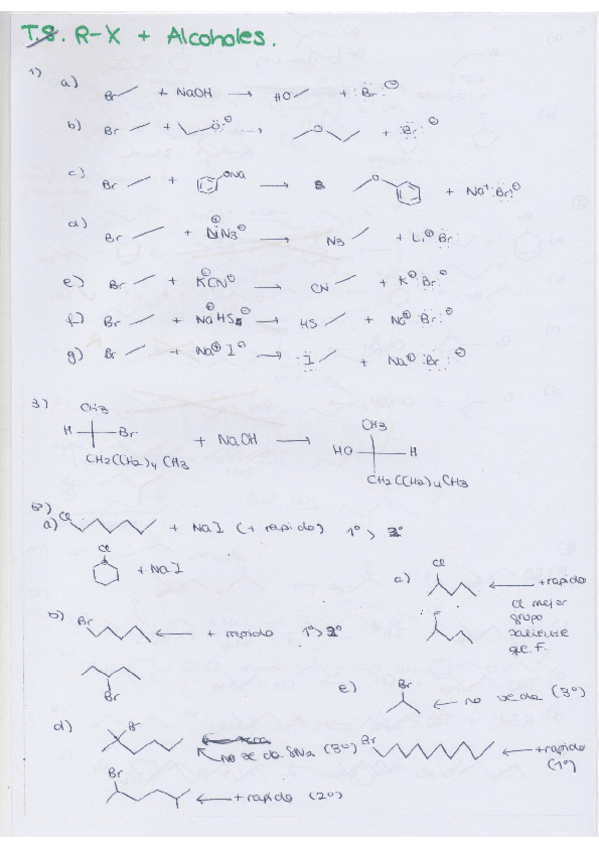 T.8. R-X + Alcoholes.
1)
a) Br + NaOH → HO + Br ⊖
b) Br + O ⊖ → O + Br ⊖
c) Br + ONa → O + Na⁺ Br ⊖
d) Br + LiN3 ⊖ → N3 + Li ⊕ Br
e) Br + K ⊕ CN ⊖ → CN + K ⊕ Br ⊖
f) Br + Na ⊕ HS → HS + Na ⊕ Br ⊖
g) Br + Na ⊕ I ⊖ → I + Na ⊕ Br ⊖
3)
CH3
H Br
CH2(CH2)4 CH3
+ NaOH →
CH3
HO H
CH2(CH2)4CH3
5º)
a) Cl + NaI (+ rapido) 1º >
Cl
+ NaI
c) Cl
← +rapido
Cl mejor
grupo
saliente
que F.
F
b) Br ← + rapido 1º > 2º
Br
e) Br
← no se da (3º)
Br ← +rapido
(1º)
d) Br
no se da SNa (3º)
Br
← +rapido (2º)